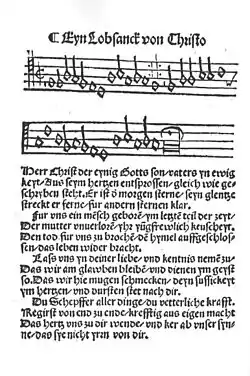 Eyn Lobsanck von Christo
Herr Christ der eynig Gotts son/vaters yn ewig
keyt/Aus seym hertzen entsprossen/gleich wie ge-
schrybē steht. Er ist ð morgen sterne/seyn glentze
streckt er ferne/fur andern sternen klar.
Fur uns ein mēsch geborē/ym letztē teil der zeyt/
Der mutter unuerlorē/yhr yūgfrewlich keuscheyt.
Den tod fur uns zu brochē/dē hymel auffgeschlos-
sen/das leben wider bracht.
Lass uns yn deiner liebe/und kentnis nemē zu/
Das wir am glawben bleibē/und dienen ym geyst
so. Das wir hie mugen schmecken/deyn sussickeyt
ym hertzen/und dursten stet nach dir.
Du Schepffer aller dinge/du vetterliche krafft.
Regirst von end zu ende/krefftig aus eigen macht
Das hertz uns zu dir wende/und ker ab unser syn-
ne/das sye nicht yrrn von dir.